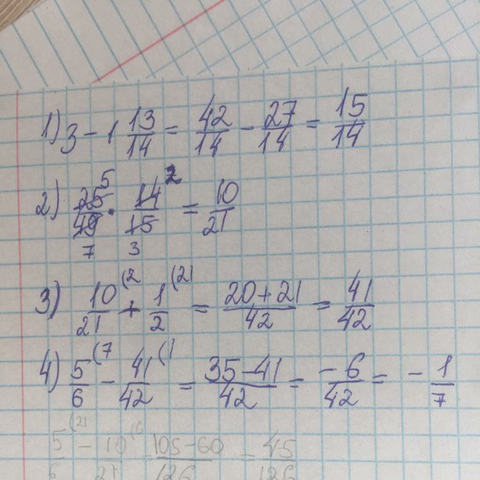 1) 3 - 1 13/14 = 42/14 - 27/14 = 15/14
2) 25⁵/49₇ · 14²/15₃ = 10/21
3) 10/21 ⁽² + 1/2 ⁽²¹ = 20+21/42 = 41/42
4) 5/6 ⁽⁷ - 41/42 ⁽¹ = 35-41/42 = -6/42 = -1/7
5/6 ⁽²¹ - 10/21 ⁽⁶ = 105-60/126 = 45/126